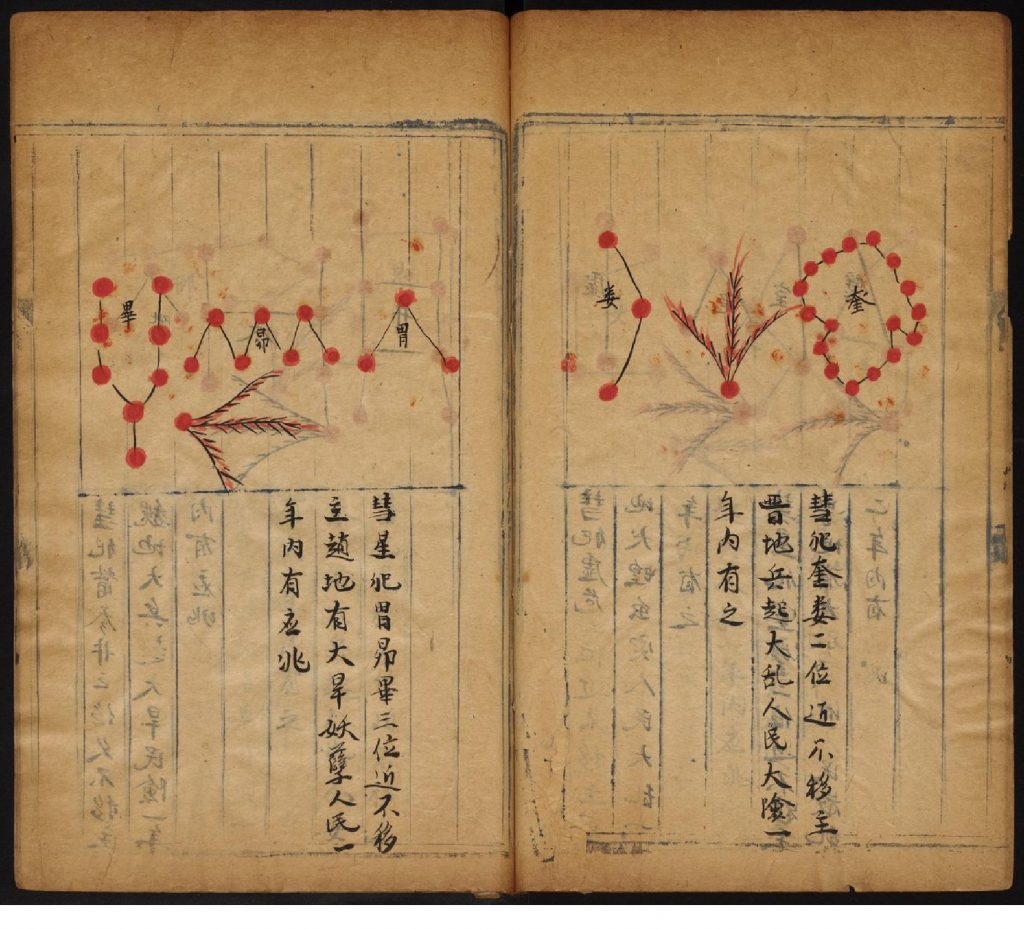 奎
婁
彗犯奎婁二位近不移主
晋地兵起大乱人民大險一
年內有之
胃
昴
畢
彗星犯胃昴畢三位近不移
主趙地有大旱妖孽人民一
年內有应兆